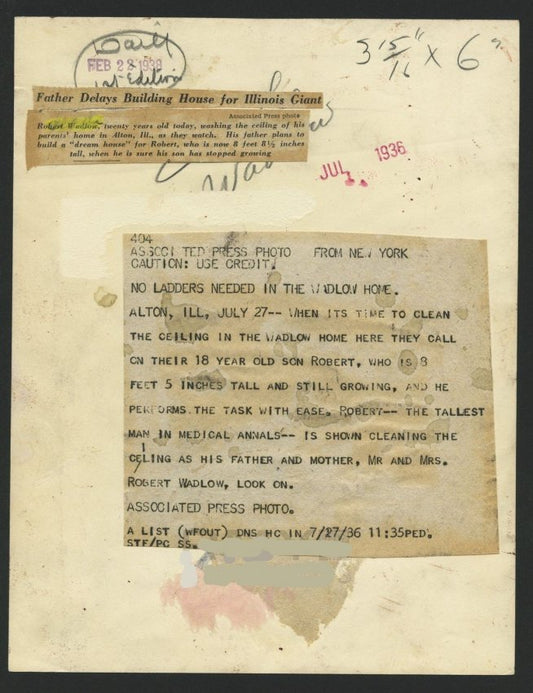 FEB 22 1938
1st Edition
3 15/16" x 6"
Father Delays Building House for Illinois Giant
Associated Press photo
Robert Wadlow, twenty years old today, washing the ceiling of his
parents' home in Alton, Ill., as they watch. His father plans to
build a "dream house" for Robert, who is now 8 feet 8½ inches
tall, when he is sure his son has stopped growing
JUL 1936
404
ASSOCI TED PRESS PHOTO FROM NEW YORK
CAUTION: USE CREDIT.
NO LADDERS NEEDED IN THE WADLOW HOME.
ALTON, ILL, JULY 27-- WHEN ITS TIME TO CLEAN
THE CEILING IN THE WADLOW HOME HERE THEY CALL
ON THEIR 18 YEAR OLD SON ROBERT, WHO IS 8
FEET 5 INCHES TALL AND STILL GROWING, AND HE
PERFORMS THE TASK WITH EASE. ROBERT-- THE TALLEST
MAN IN MEDICAL ANNALS-- IS SHOWN CLEANING THE
CELING AS HIS FATHER AND MOTHER, MR AND MRS.
ROBERT WADLOW, LOOK ON.
ASSOCIATED PRESS PHOTO.
A LIST (WFOUT) DNS HC IN 7/27/36 11:35PED.
STF/PC SS.